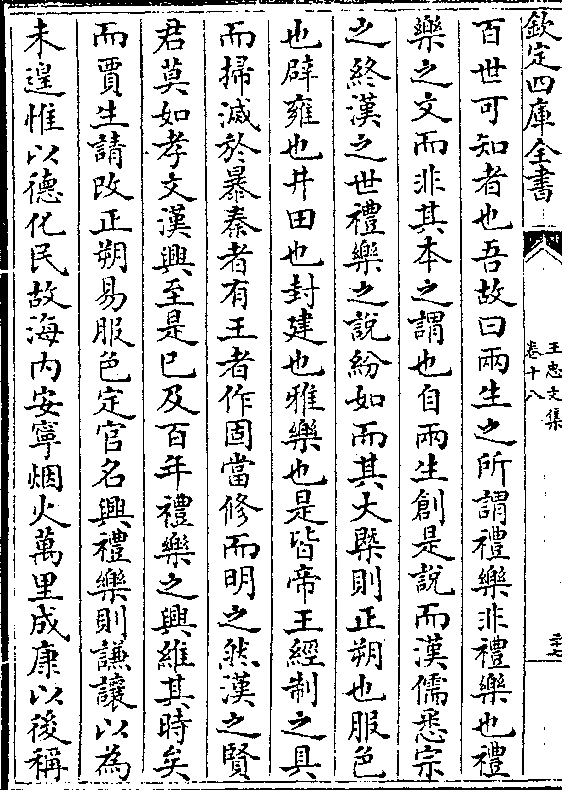 欽定四庫全書
王忠文集
卷十八
二十七
百世可知者也吾故曰兩生之所謂禮樂非禮樂也禮
樂之文而非其本之謂也自兩生創是說而漢儒悉宗
之終漢之世禮樂之說紛如而其大槩則正朔也服色
也辟雍也井田也封建也雅樂也是皆帝王經制之具
而掃滅於暴秦者有王者作固當修而明之然漢之賢
君莫如孝文漢興至是已及百年禮樂之興維其時矣
而賈生請改正朔易服色定官名興禮樂則謙讓以為
未遑惟以德化民故海内安寧烟火萬里成康以後稱